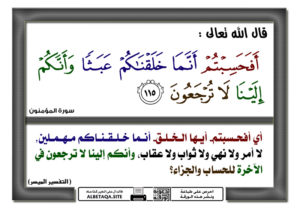 قال الله تعالى :
أَفَحَسِبْتُمْ أَنَّمَا خَلَقْنَاكُمْ عَبَثًا وَأَنَّكُمْ
إِلَيْنَا لَا تُرْجَعُونَ ﴿١١٥﴾
سورة المؤمنون
أي أفحسبتم أيها الخلق أنما خلقناكم مهملين،
لا أمر ولا نهي ولا ثواب ولا عقاب، وأنكم إلينا لا ترجعون في
الآخرة للحساب والجزاء؟
(التفسير الميسر)
ALBETAQA.SITE